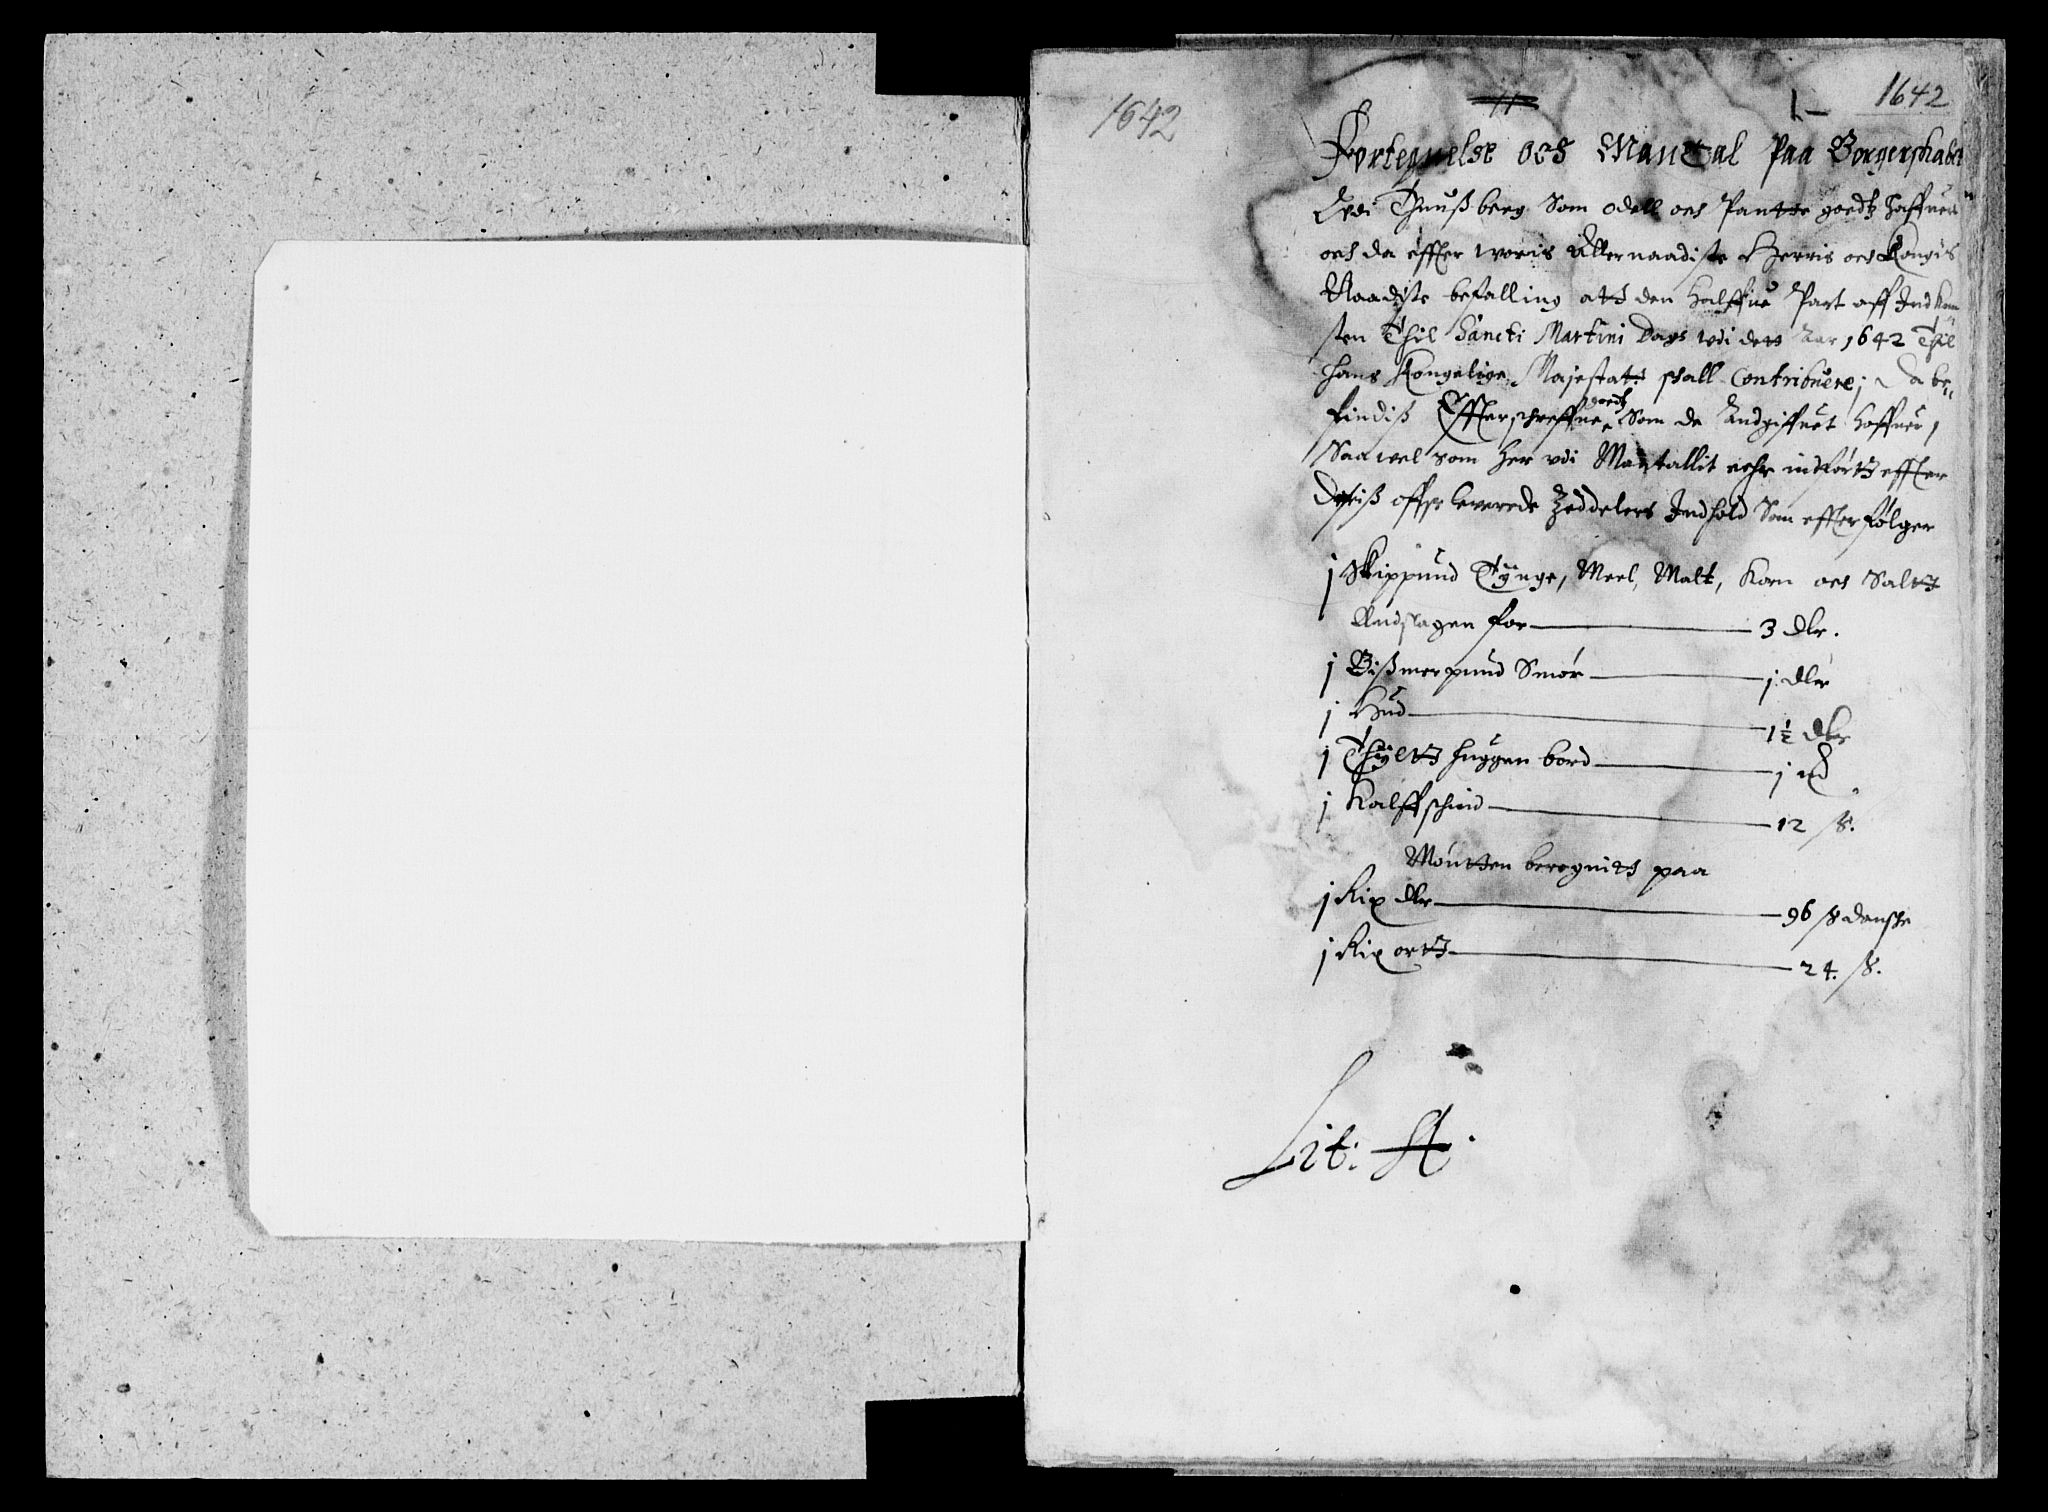 1642
1642
Fortegnelse och Mantal Paa Borgerskabet
Vdi Thunßberg Som odell och Pantte goedtz haffuer
och da effter woris Allernaadiste Herris och Kongis
Naadiste befalling att den halffue Part aff Indkom-
sten Thil Sancti Martini Dags vdi dett Aar 1642 Thil
hans Kongelige Majestatt shall Contribuere; Da be-
findiß Effterschreffne goedtz Som de Andgiffuet haffuer,
Saa wel som her vdi Mantallit indførtt effter
leverede Zeddelers Indhold Som effterfølger
j Skippund Tynge, Meel, Malt, Korn och Saltt
Andslagen for — 3 dlr.
j Bißmerpund Smør — j dlr
j Hud — 1½ dlr
j Thyltt huggen bord — j
j Kalffschind — 12 ß.
Møntten beregnitt paa
j Rix dlr — 96 ß danske
j Rix ortt — 24. ß.
Lit: A.